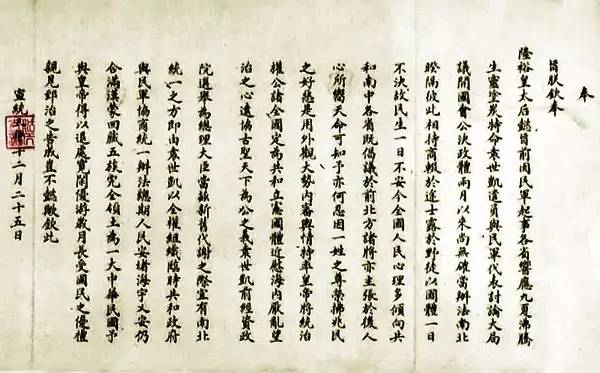 奉
旨朕欽奉
隆裕皇太后懿旨前因國民軍起事各省響應九夏沸騰
生靈塗炭特命袁世凱遣員與民軍代表討論大局
議開國會公決政體兩月以來尚無確當辦法南北
暌隔彼此相持商輟於途士露於野徒以國體一日
不決故民生一日不安今全國人民心理多傾向共
和南中各省既倡議於前北方諸將亦主張於後人
心所嚮天命可知予亦何忍因一姓之尊榮拂兆民
之好惡是用外觀大勢內審輿情特率皇帝將統治
權公諸全國定為共和立憲國體近慰海內厭亂望
治之心遠協古聖天下為公之義袁世凱前經資政
院選舉為總理大臣當茲新舊代謝之際宜有南北
統一之方即由袁世凱以全權組織臨時共和政府
與民軍協商統一辦法總期人民安堵海宇乂安仍
合滿漢蒙回藏五族完全領土為一大中華民國予
與皇帝得以退處寬閒優游歲月長受國民之優禮
親見郅治之告成豈不懿歟欽此
宣統三年十二月二十五日